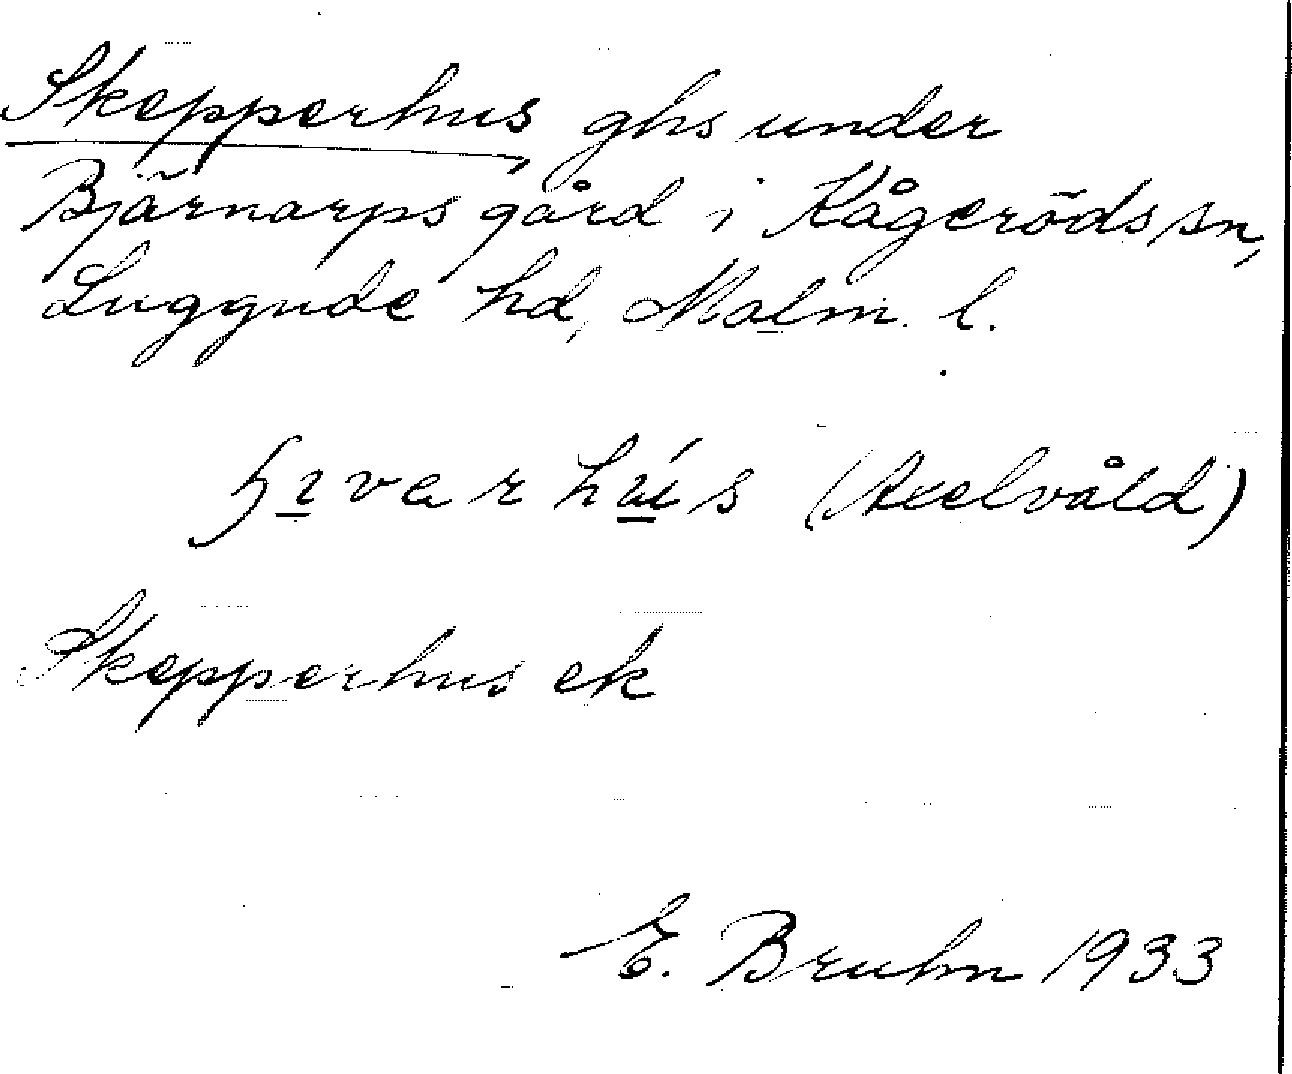 Skepperhus, ghs under
Bjärnarps gård i Kågeröds sn,
Luggude hd, Malm. l.
(Axelvåld)
Skepperhus ek
E. Bruhn 1933